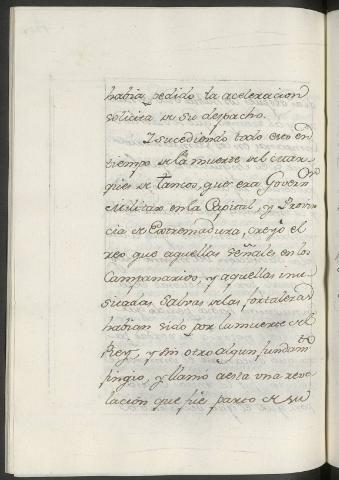 havia pedido la aceleracion
solicita de su despacho.
Y sucediendo todo esto en
tiempo de la muerte del Marq
ues de Tancos, que era Govern.or
Militar en la Capital, y Provin
cia de Extremadura, creyó el
reo que aquellas señales en los
Campanarios, y aquellas inu
sitadas Salvas de las fortalezas
habian sido por la muerte del
Rey, y sin otro algun fundam.to
fingio, y llamó a esta una reve
lacion que fue parto de su